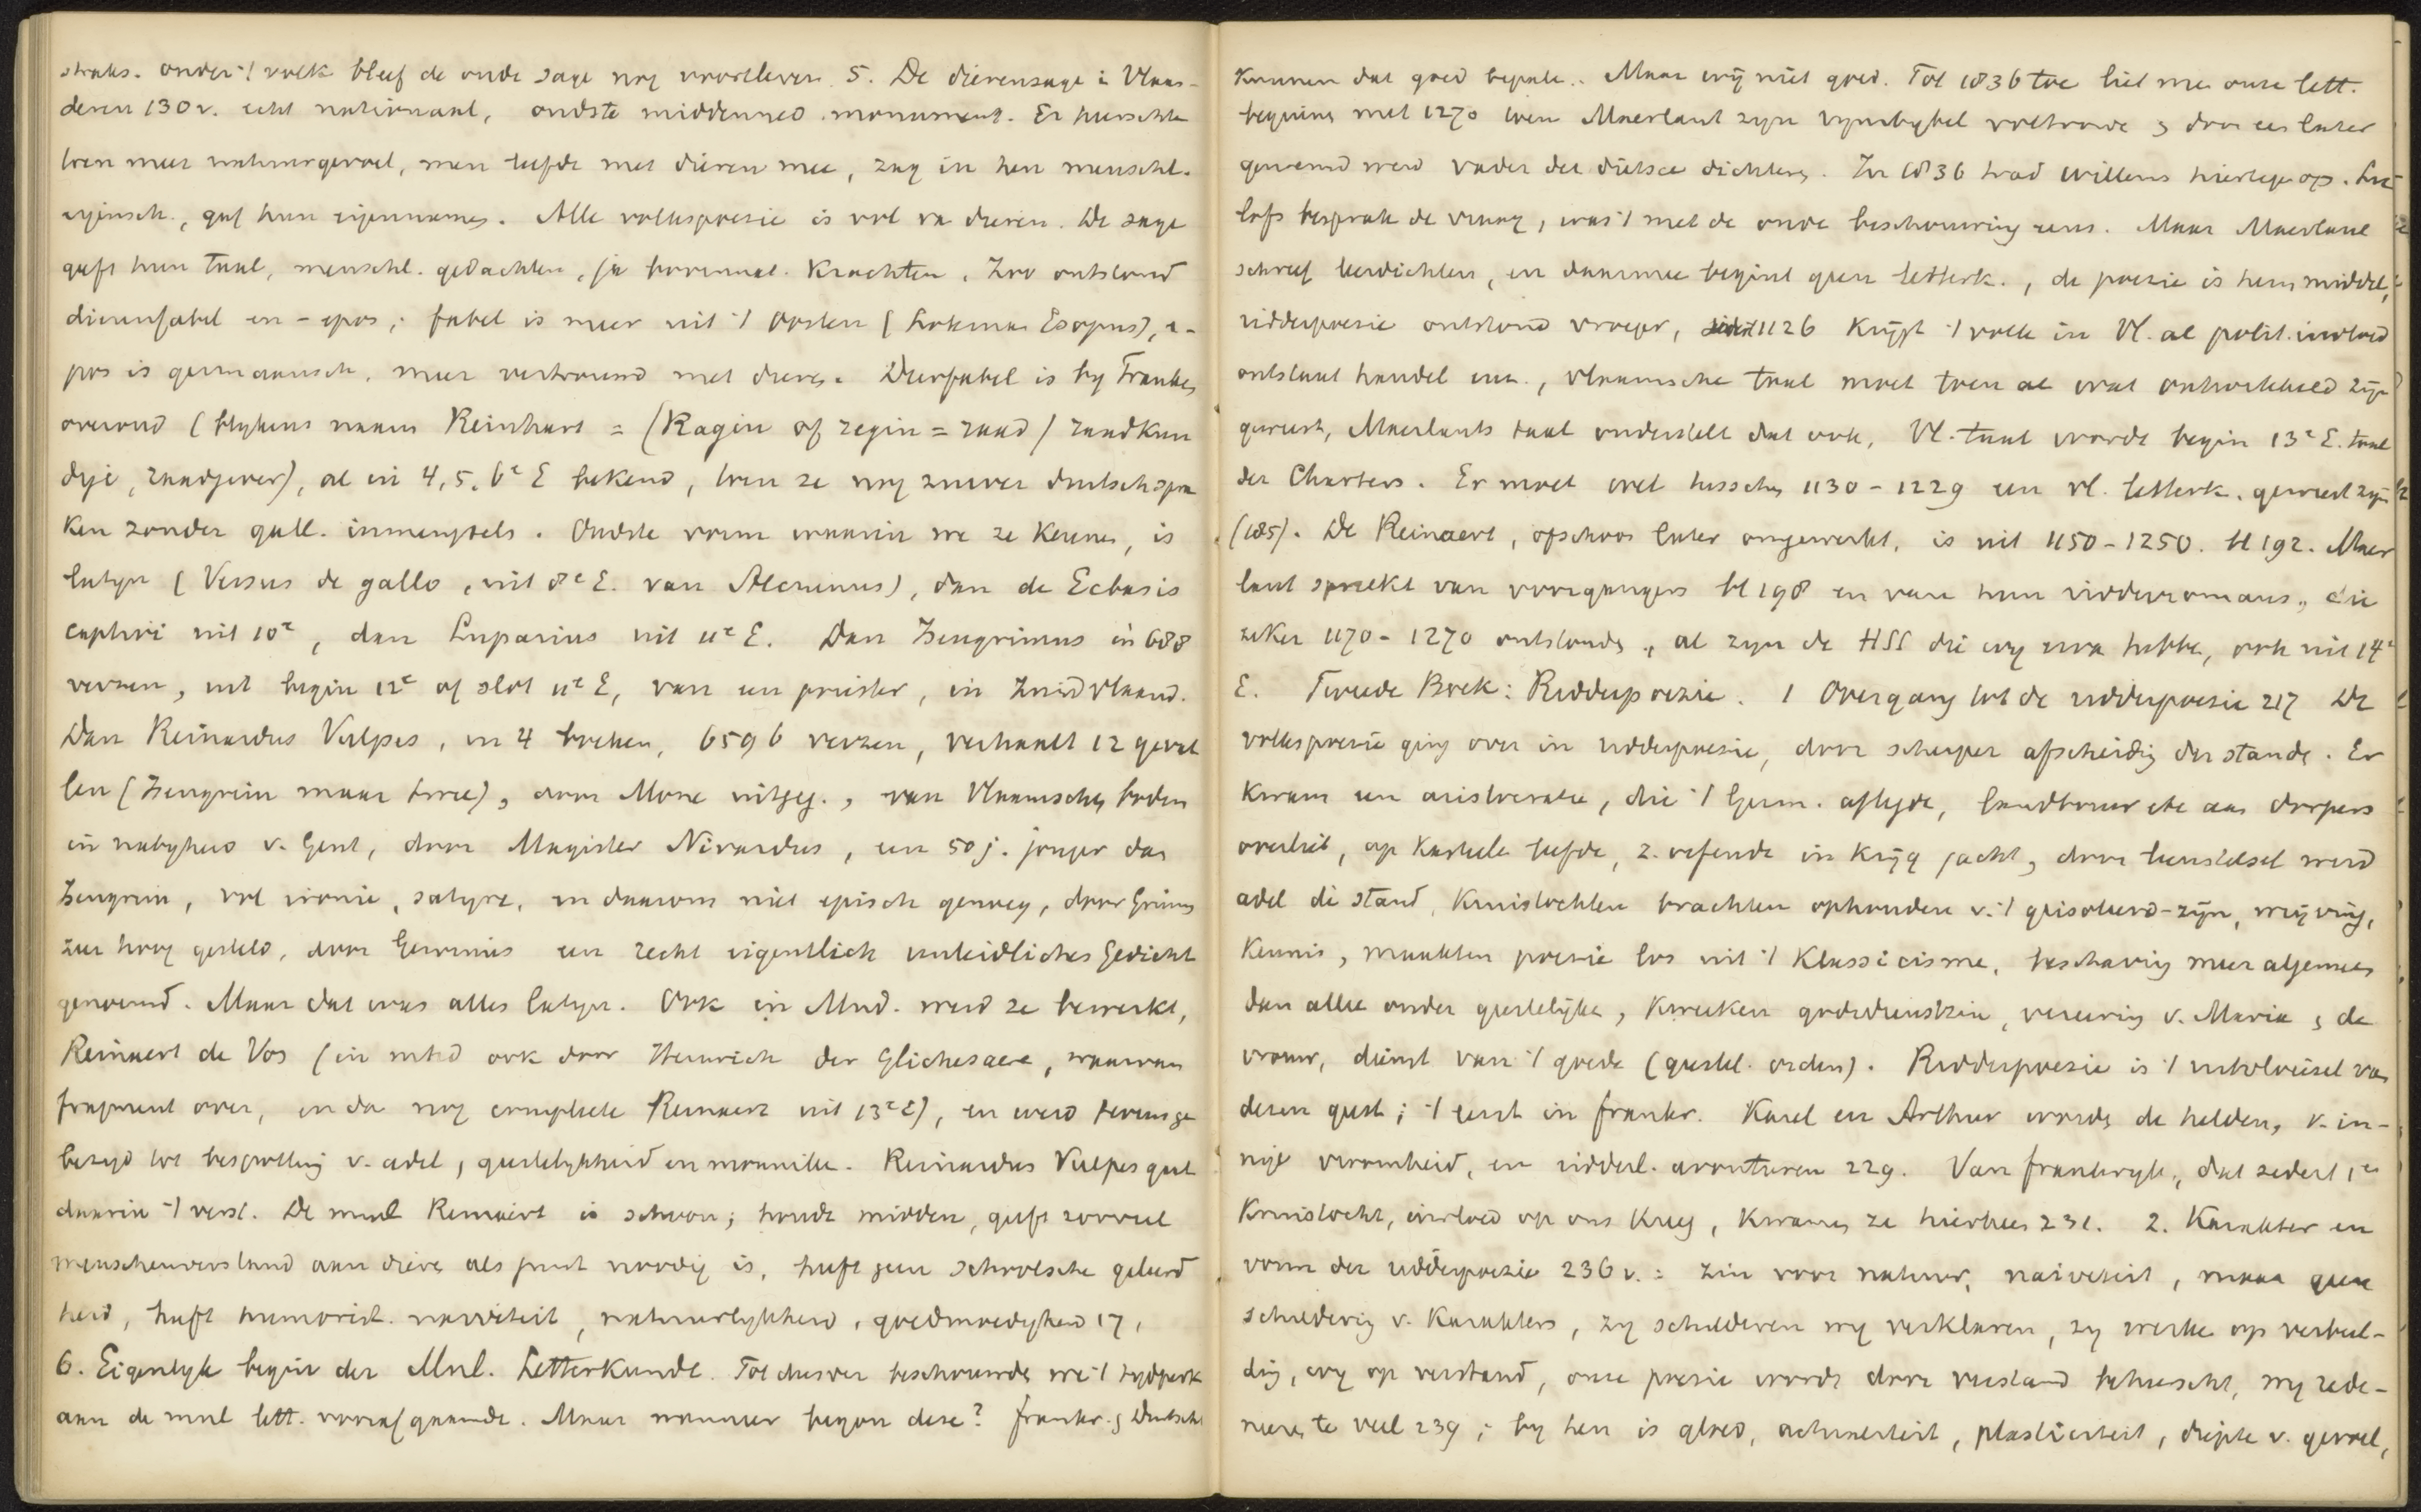 straks. onder 't volk bleef de oude sage nog voortleven. 5. De dierensage i Vlaan-
deren 130 v. echt nationaal, oudste middenned. monument. Er heerschte
toen meer natuurgevoel, men leefde met dieren mee, zag in hen menschl.
eigensch., gaf hun eigennamen. Alle volkspoesie is vol va dieren. De sage
geeft hun taal, menschl. gedachten, ja bovennat. krachten. Zoo ontstond
dierenfabel en -epos; fabel is meer uit 't Oosten (Lokman Esopus), e-
pos is germaansch, meer vertrouwd met dieren. Dierfabel is by Franken
oeroud (blykens naam Reinhart = (Ragin of regin = raad / raadkun
dige, raadgever), al in 4, 5, 6e E bekend, toen ze nog zuiver duitsch spra
ken zonder gall. inmengsels. Oudste vorm waarin we ze kennen, is
latyn (Versus de gallo, uit 8e E. van Alcuinus), dan de Ecbasis
captivi uit 10e, dan Luparius uit 11e E. Dan Isengrimus in 688
verzen, uit begin 12e of slot 11e E, van een priester, in Zuidvlaand.
Dan Reinardus Vulpes, in 4 boeken, 6596 verzen, verhaalt 12 geval
len (Isengrim maar twee), door Mone uitgeg., van Vlaamschen bodem
in nabyheid v. Gent, door Magister Nivardus, een 50 j. jonger dan
Isengrim, vol ironie, satyre, en daarom niet episch genoeg, door Grimm
zeer hoog gesteld, door Gervinus ein recht eigentlich unleidliches Gedicht
genoemd. Maar dat was alles latyn. Ook in Mnd. werd ze bewerkt,
Reinaert de Vos (in mhd ook door Heinrich der Glichesaere, waarvan
fragment over, en da nog complete Reinaert uit 13e E), en werd tevens ge
bezigd tot bespotting v. adel, geestelykheid en monniken. Reinardus Vulpes gaat
daarin 't verst. De mnl Reinaert is schoon; houdt midden, geeft zooveel
menschenverstand aan dieren als juist noodig is, heeft geen schoolsche geleerd
heid, heeft humorist. naiviteit, natuurlykheid, goedmoedigheid 17,
6. Eigenlyk begin der Mnl. Letterkunde. Tot dusver beschouwde we 't tydperk
aan de mnl lett. voorafgaande. Maar wanneer begon deze? Frankr. & Duitschl
kunnen dat goed bepale. Maar wij niet goed. Tot 1836 toe liet me onze lett.
beginnen met 1270 toen Maerlant zyn rymbybel voltooide & door een later
genoemd werd vader der dietsce dichtern. In 1836 trad Willems hiertege op.
lofs besprak de vraag, was 't met de oude beschouwing eens. Maar Maerlant
schreef leerdichten, en daarmee begint geen letterk., de poezie is hem middel,
ridderpoezie ontstond vroeger, 1126 krijgt 't volk in Vl. al polit. invloed
ontstaat handel enz., vlaamsche taal moet toen al wat ontwikkeld zijn
geweest, Maerlants taal onderstelt dat ook, Vl. taal wordt begin 13e E. taal
der Charters. Er moet wel tusschen 1130-1229 een vl. letterk. geweest zijn
(185). De Reinaert, ofschoon later omgewerkt, is uit 1150-1250. bl 192. Maer
lant spreekt van voorgangers bl 198 en van hun ridderromans, die
zeker 1170-1270 ontstonden, al zyn de HSS die wy erva hebbe, ook uit 14e
E. Tweede Boek: Ridderpoezie. 1 Overgang tot de ridderpoesie 217 De
volkspoesie ging over in ridderpoesie, door scherper afscheidig der stande. Er
kwam een aristocratie, die 't Germ. aflegde, landbouw etc aan dorpers
overliet, op kasteele leefde, z. oefende in krijg jacht, door leenstelsel werd
adel die stand, kruistochten brachten ophouden v. 't geisoleerd-zijn, wrijving,
kennis, maakten poezie los uit 't Klassicisme, beschaving meer algemeen
dan alleen onder geestelijken, kweeken godsdienstzin, vereering v. Maria & de
vrouw, dienst van 't goede (geestel. orden). Ridderpoezie is 't uitvloeisel van
dezen geest; 't eerst in Frankr. Karel en Arthur worden de helden, v. in-
nige vroomheid, en ridderl. avonturen 229. Van Frankryk, dat sedert 1en
Kruistocht, invloed op ons kreeg, kwamen ze hierheen 231. 2. Karakter en
vorm der ridderpoezie 236 v. : zin voor natuur, naiveteit, maar geen
schildering v. karakters, zy schilderen wy verklaren, zy werke op verbeel-
ding, wy op verstand, onze poesie wordt door verstand beheerscht, wy rede-
neeren te veel 239; by hen is gloed, actualiteit, plasticiteit, diepte v. gevoel,